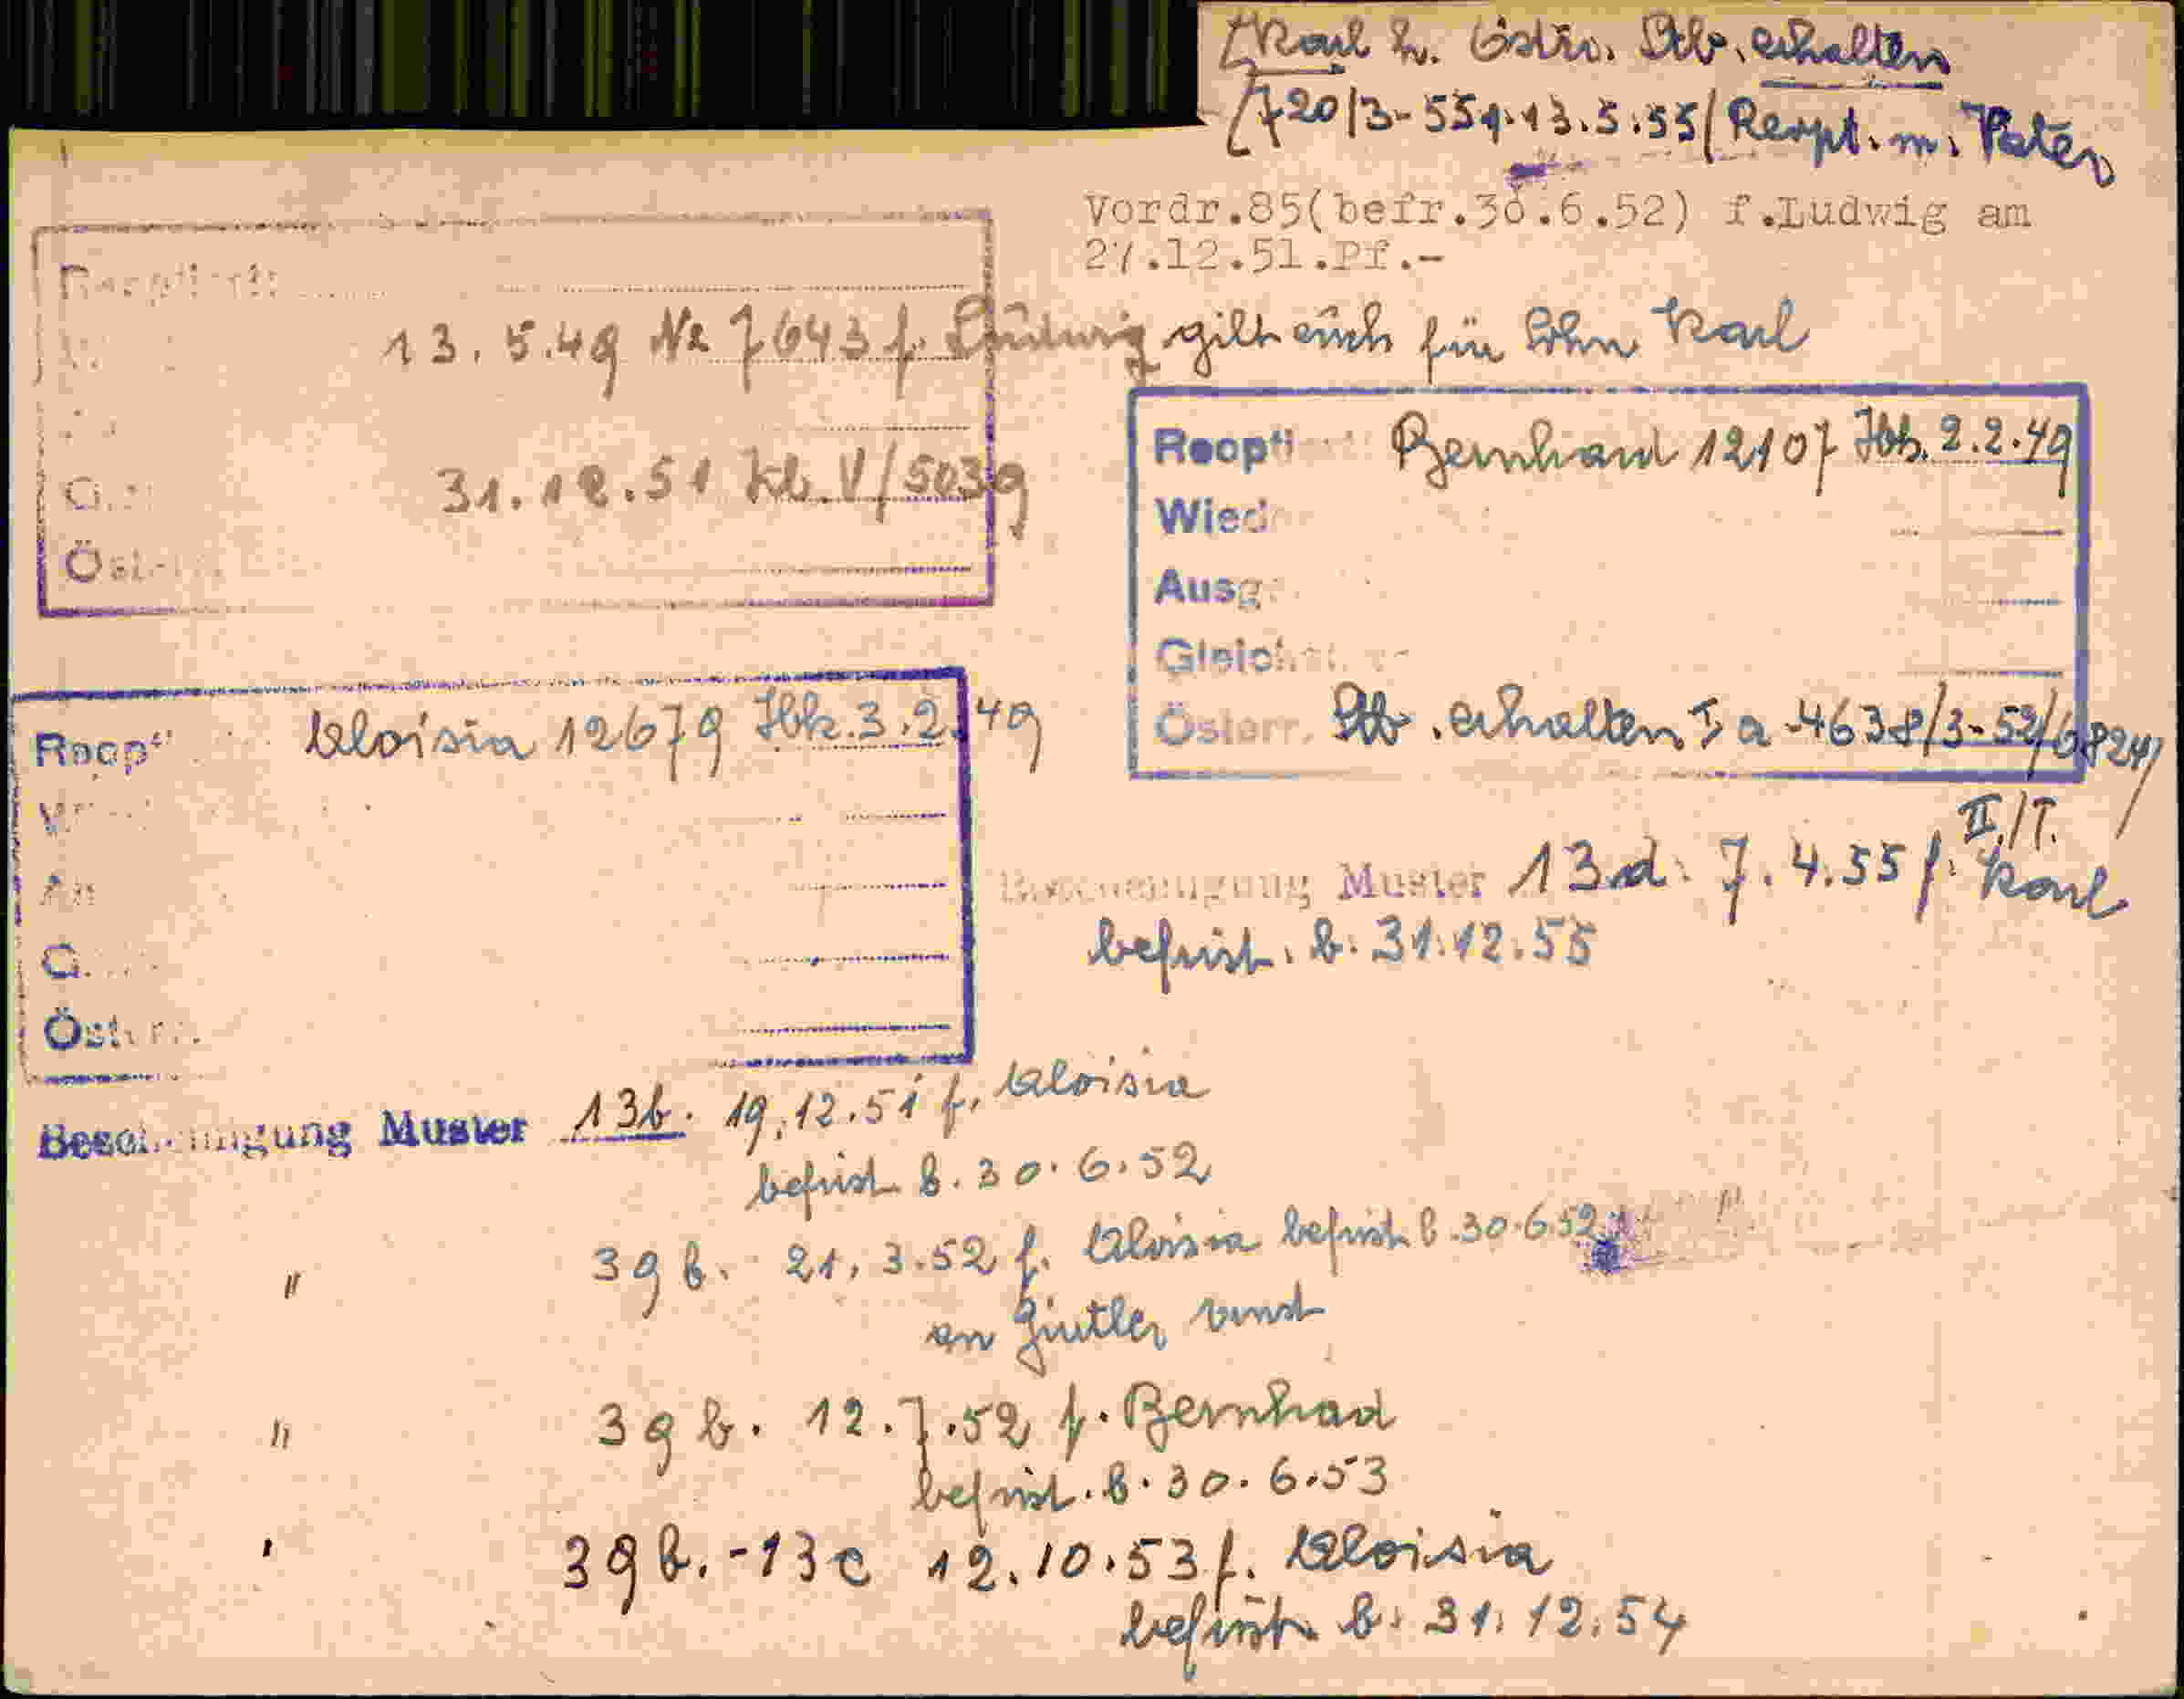 Karl h. Östr. Stb. erhalten
720/3-551.13.5.55/Reopt. m. Vater
Vordr.85(befr.30.6.52) f.Ludwig am
27.12.51.Pf.-
13.5.49 Nr 7643 f. Ludwig gilt auch für Sohn Karl
31.12.51 Kl. V/5039
Öst
Reopti Bernhard 12107 Ibk. 2.2.49
Wied
Ausg
Gleich
Österr. Stb. erhalten Ia-4638/3-52/6824/
II./T.
Reopt Aloisia 12679 Ibk. 3.2.49
G.
Österr.
Bescheinigung Muster 13d. 7.4.55 f. Karl
befrist. b. 31.12.55
Bescheinigung Muster 13b. 19.12.51 f. Aloisia
befrist b. 30.6.52
" 39b. 21.3.52 f. Aloisia befrist b. 30.6.52
an
" 39b. 12.7.52 f. Bernhard
befrist. b. 30.6.53
" 39b.-13c 12.10.53 f. Aloisia
befrist b. 31.12.54